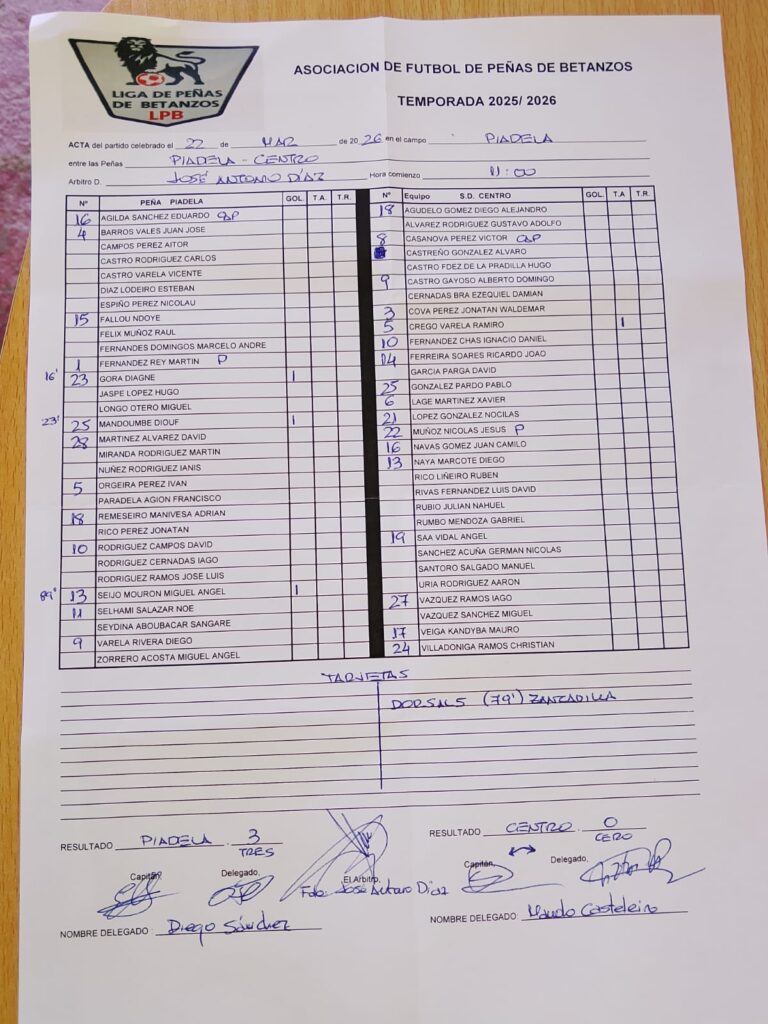 LIGA DE PEÑAS
DE BETANZOS
LPB
ASOCIACION DE FUTBOL DE PEÑAS DE BETANZOS
TEMPORADA 2025/ 2026
ACTA del partido celebrado el 22 de MAR de 20 26 en el campo PIADELA
entre las Peñas PIADELA - CENTRO
Arbitro D. JOSÉ ANTONIO DÍAZ Hora comienzo 11:00
Nº PEÑA PIADELA GOL. T.A. T.R.
16 AGILDA SANCHEZ EDUARDO
4 BARROS VALES JUAN JOSE
CAMPOS PEREZ AITOR
CASTRO RODRIGUEZ CARLOS
CASTRO VARELA VICENTE
DIAZ LODEIRO ESTEBAN
ESPIÑO PEREZ NICOLAU
15 FALLOU NDOYE
FELIX MUÑOZ RAUL
FERNANDES DOMINGOS MARCELO ANDRE
1 FERNANDEZ REY MARTIN P
16' 23 GORA DIAGNE 1
JASPE LOPEZ HUGO
LONGO OTERO MIGUEL
23' 25 MANDOUMBE DIOUF 1
28 MARTINEZ ALVAREZ DAVID
MIRANDA RODRIGUEZ MARTIN
NUÑEZ RODRIGUEZ IANIS
5 ORGEIRA PEREZ IVAN
PARADELA AGION FRANCISCO
18 REMESEIRO MANIVESA ADRIAN
RICO PEREZ JONATAN
10 RODRIGUEZ CAMPOS DAVID
RODRIGUEZ CERNADAS IAGO
RODRIGUEZ RAMOS JOSE LUIS
89' 13 SEIJO MOURON MIGUEL ANGEL 1
11 SELHAMI SALAZAR NOE
SEYDINA ABOUBACAR SANGARE
9 VARELA RIVERA DIEGO
ZORRERO ACOSTA MIGUEL ANGEL
Nº Equipo S.D. CENTRO GOL. T.A T.R.
18 AGUDELO GOMEZ DIEGO ALEJANDRO
ALVAREZ RODRIGUEZ GUSTAVO ADOLFO
8 CASANOVA PEREZ VICTOR
CASTREÑO GONZALEZ ALVARO
CASTRO FDEZ DE LA PRADILLA HUGO
9 CASTRO GAYOSO ALBERTO DOMINGO
CERNADAS BRA EZEQUIEL DAMIAN
3 COVA PEREZ JONATAN WALDEMAR
5 CREGO VARELA RAMIRO 1
10 FERNANDEZ CHAS IGNACIO DANIEL
14 FERREIRA SOARES RICARDO JOAO
GARCIA PARGA DAVID
25 GONZALEZ PARDO PABLO
6 LAGE MARTINEZ XAVIER
21 LOPEZ GONZALEZ NOCILAS
22 MUÑOZ NICOLAS JESUS P
16 NAVAS GOMEZ JUAN CAMILO
13 NAYA MARCOTE DIEGO
RICO LIÑEIRO RUBEN
RIVAS FERNANDEZ LUIS DAVID
RUBIO JULIAN NAHUEL
RUMBO MENDOZA GABRIEL
19 SAA VIDAL ANGEL
SANCHEZ ACUÑA GERMAN NICOLAS
SANTORO SALGADO MANUEL
URIA RODRIGUEZ AARON
27 VAZQUEZ RAMOS IAGO
VAZQUEZ SANCHEZ MIGUEL
17 VEIGA KANDYBA MAURO
24 VILLADONIGA RAMOS CHRISTIAN
TARJETAS
DORSAL 5 (79') ZANCADILLA
RESULTADO PIADELA . 3
TRES
RESULTADO CENTRO . 0
CERO
Capitán, Delegado, El Arbitro, Capitán, Delegado,
Fdo: José Antonio Díaz
NOMBRE DELEGADO : Diego Sánchez
NOMBRE DELEGADO: Casteleiro